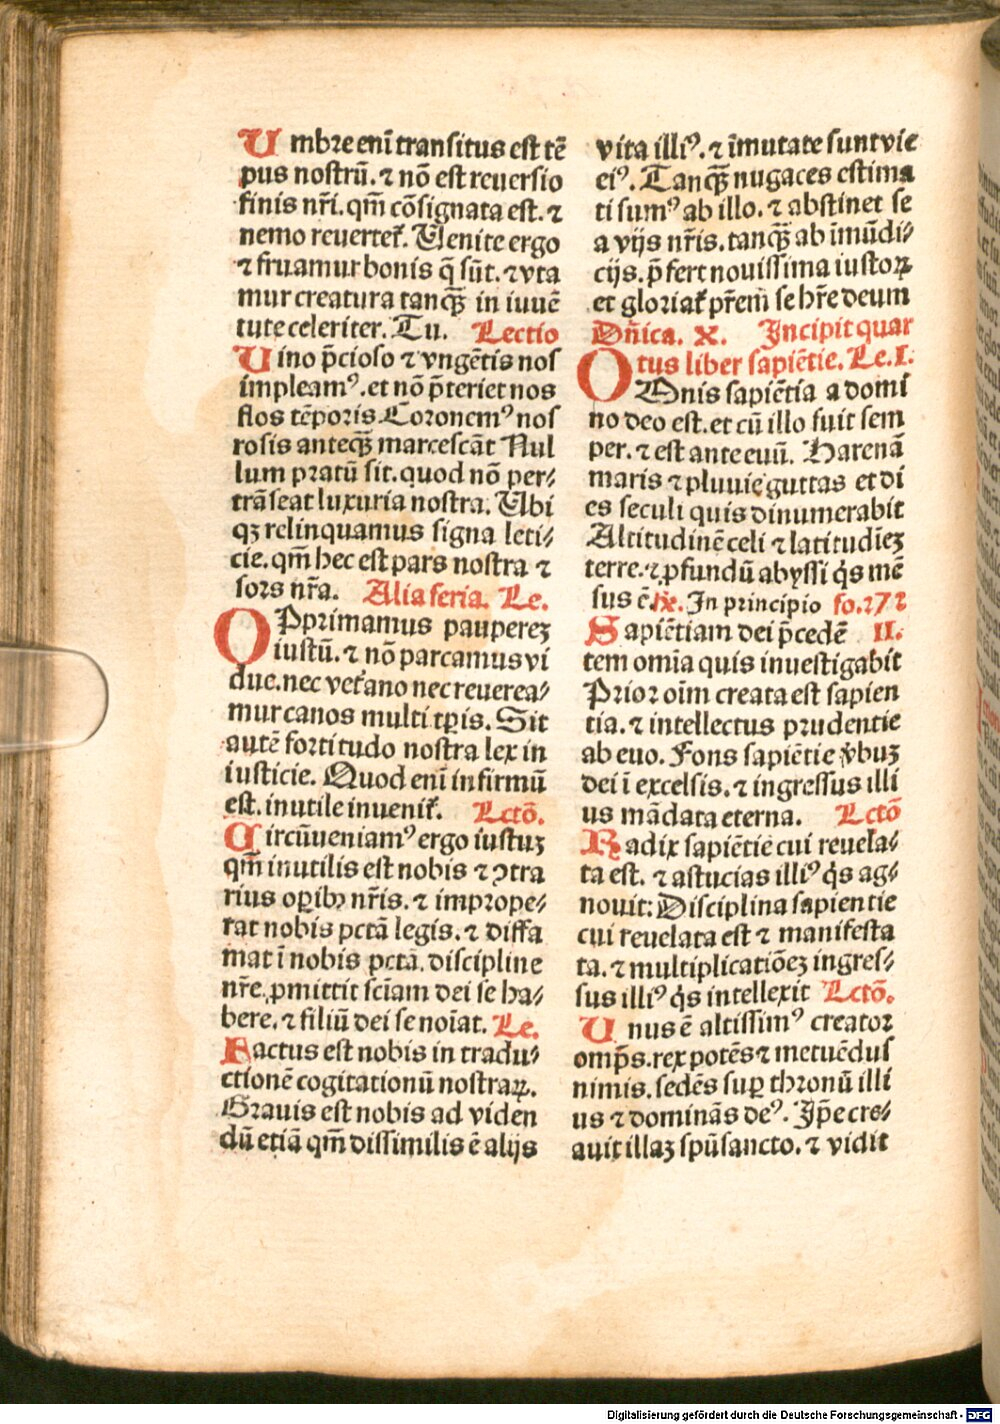 Umbre eni̅ transitus est te̅
pus nostrū. ⁊ nō est reuersio
finis nr̄i. qm̄ cōsignata est. ⁊
nemo reuertet̄. Uenite ergo
⁊ fruamur bonis q̄ sūt. ⁊ vta
mur creatura tanqȝ̄ in iuuē
tute celeriter. Tu. Lectio
Uino p̄cioso ⁊ vngētis nos
impleamꝰ. et nō p̄teriet nos
flos tēporis. Coronemꝰ nos
rosis anteqȝ̄ marcescāt Nul
lum pratū sit. quod nō per⸗
trāseat luxuria nostra. Ubi
qȝ relinquamus signa leti⸗
cie. qm̄ hec est pars nostra ⁊
sors nr̄a. Alia feria. Le.
OPprimamus paupereȝ
iustū. ⁊ nō parcamus vi
due. nec vet̄ano nec reuerea⸗
mur canos multi tp̄is. Sit
autē fortitudo nostra lex in
iusticie. Quod enī infirmū
est. inutile inuenit̄. Lctō.
Circūueniamꝰ ergo iustuȝ
qm̄ inutilis est nobis ⁊ ꝯtra
rius oꝑibꝫ nr̄is. ⁊ imprope⸗
rat nobis pctā legis. ⁊ diffa
mat ī nobis pctā. discipline
nr̄e. ꝓmittit sciam dei se ha⸗
bere. ⁊ filiū dei se noīat. Le.
Factus est nobis in tradu⸗
ctionē cogitationū nostraꝝ.
Grauis est nobis ad viden
dū etiā qm̄ dissimilis ē alijs
vita illiꝰ. ⁊ īmutate sunt vie
eiꝰ. Tanqȝ̄ nugaces estima
ti sumꝰ ab illo. ⁊ abstinet se
a vijs nr̄is. tanqȝ̄ ab īmūdi⸗
cijs. p̄fert nouissima iustoꝝ
et gloriat̄ pr̄em se hr̄e deum
Dn̄ica. X. Incipit quar
tus liber sapiētie. Le. I.
OOnis sapiētia a domi
no deo est. et cū illo fuit sem
per. ⁊ est ante euū. Harenā
maris ⁊ pluuie guttas et di
es seculi quis dinumerabit
Altitudinē celi ⁊ latitudieȝ
terre. ⁊ ꝓfundū abyssi q̇s mē
sus ē. ix. In principio fo. 272
Sapiētiam dei p̄cedē II.
tem omia quis inuestigabit
Prior oīm creata est sapien
tia. ⁊ intellectus prudentie
ab euo. Fons sapiētie v̄buȝ
dei ī excelsis. ⁊ ingressus illi
us mādata eterna. Lctō
Radix sapiētie cui reuela⸗
ta est. ⁊ astucias illiꝰ q̇s ag⸗
nouit: Disciplina sapientie
cui reuelata est ⁊ manifesta
ta. ⁊ multiplicatiōeȝ ingres⸗
sus illiꝰ q̇s intellexit Lctō.
Unus ē altissimꝰ creator
omp̄s. rex potēs ⁊ metuēdus
nimis. sedēs suꝑ thronū illi
us ⁊ dominās deꝰ. Ip̄e cre⸗
auit illaȝ spū sancto. ⁊ vidit
Digitalisierung gefördert durch die Deutsche Forschungsgemeinschaft - DFG